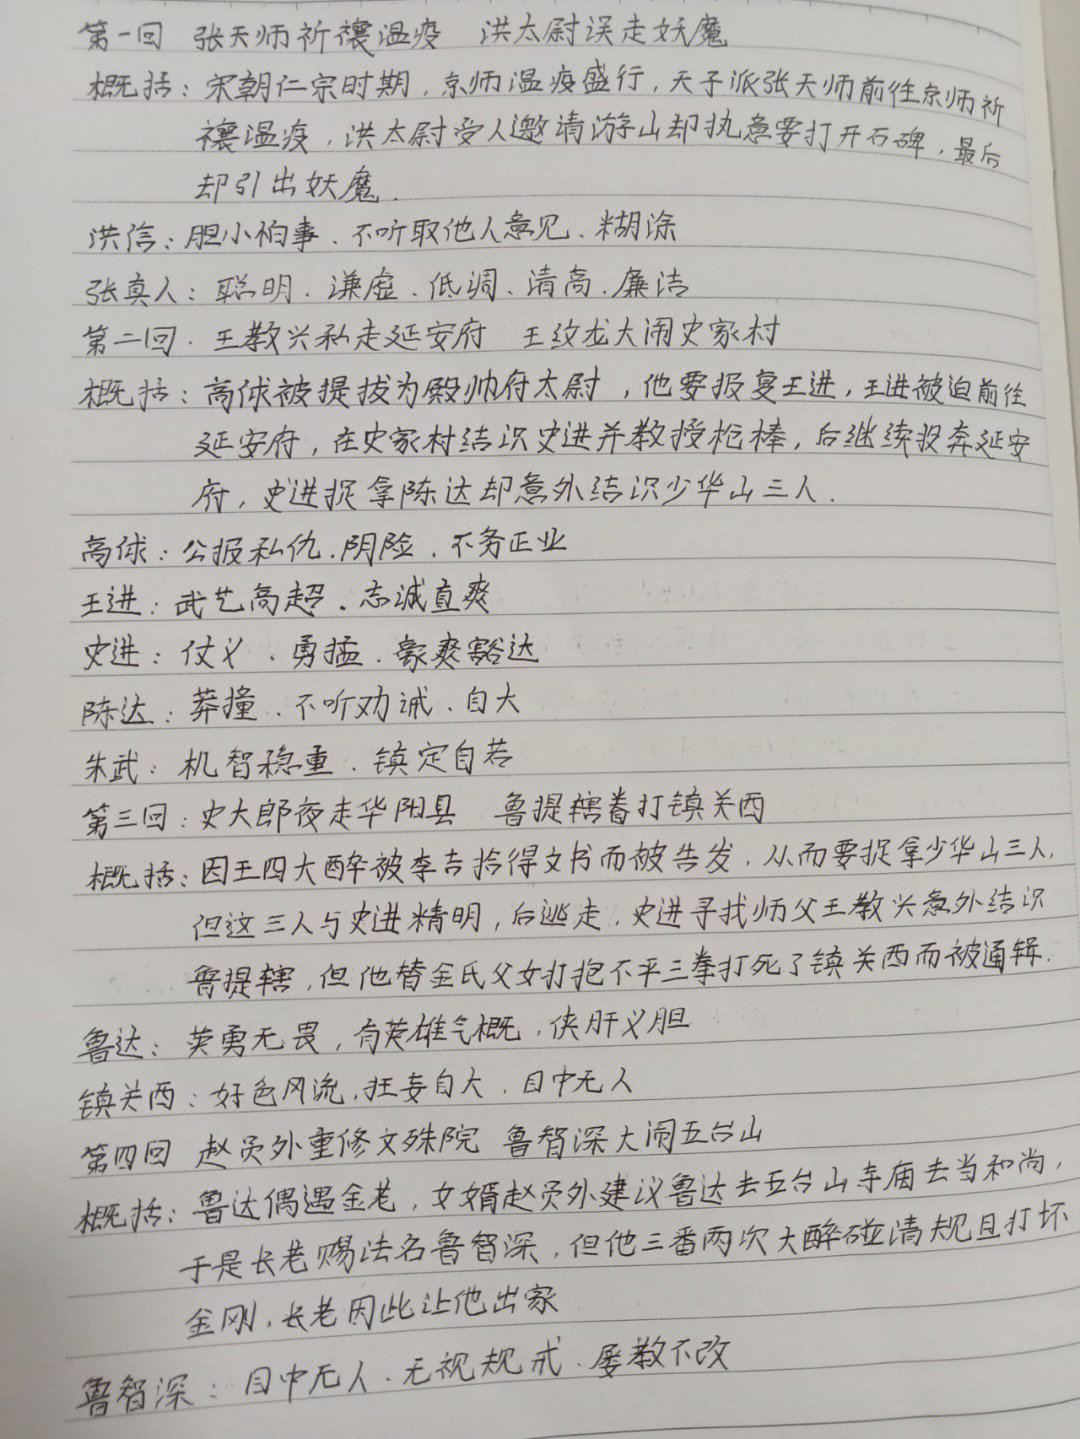 第一回 张天师祈禳温疫 洪太尉误走妖魔
概括：宋朝仁宗时期，京师温疫盛行，天子派张天师前往京师祈
禳温疫，洪太尉受人邀请游山却执意要打开石碑，最后
却引出妖魔.
洪信：胆小怕事、不听取他人意见、糊涂
张真人：聪明、谦虚、低调、清高、廉洁
第二回. 王教兴私走延安府 王纹龙大闹史家村
概括：高俅被提拔为殿帅府太尉，他要报复王进，王进被迫前往
延安府，在史家村结识史进并教授枪棒，后继续投奔延安
府，史进捉拿陈达却意外结识少华山三人.
高俅：公报私仇、阴险、不务正业
王进：武艺高超、志诚直爽
史进：仗义、勇猛、豪爽豁达
陈达：莽撞、不听劝诫、自大
朱武：机智稳重、镇定自若
第三回：史大郎夜走华阳县 鲁提辖眷打镇关西
概括：因王四大醉被李吉拾得文书而被告发，从而要捉拿少华山三人，
但这三人与史进精明，后逃走，史进寻找师父王教兴意外结识
鲁提辖，但他替金氏父女打抱不平三拳打死了镇关西而被通辑.
鲁达：英勇无畏，有英雄气概，侠肝义胆
镇关西：好色风流，狂妄自大、目中无人
第四回 赵员外重修文殊院 鲁智深大闹五台山
概括：鲁达偶遇金老，女婿赵员外建议鲁达去五台山寺庙去当和尚，
于是长老赐法名鲁智深，但他三番两次大醉碰清规且打坏
金刚，长老因此让他出家
鲁智深：目中无人、无视规戒、屡教不改